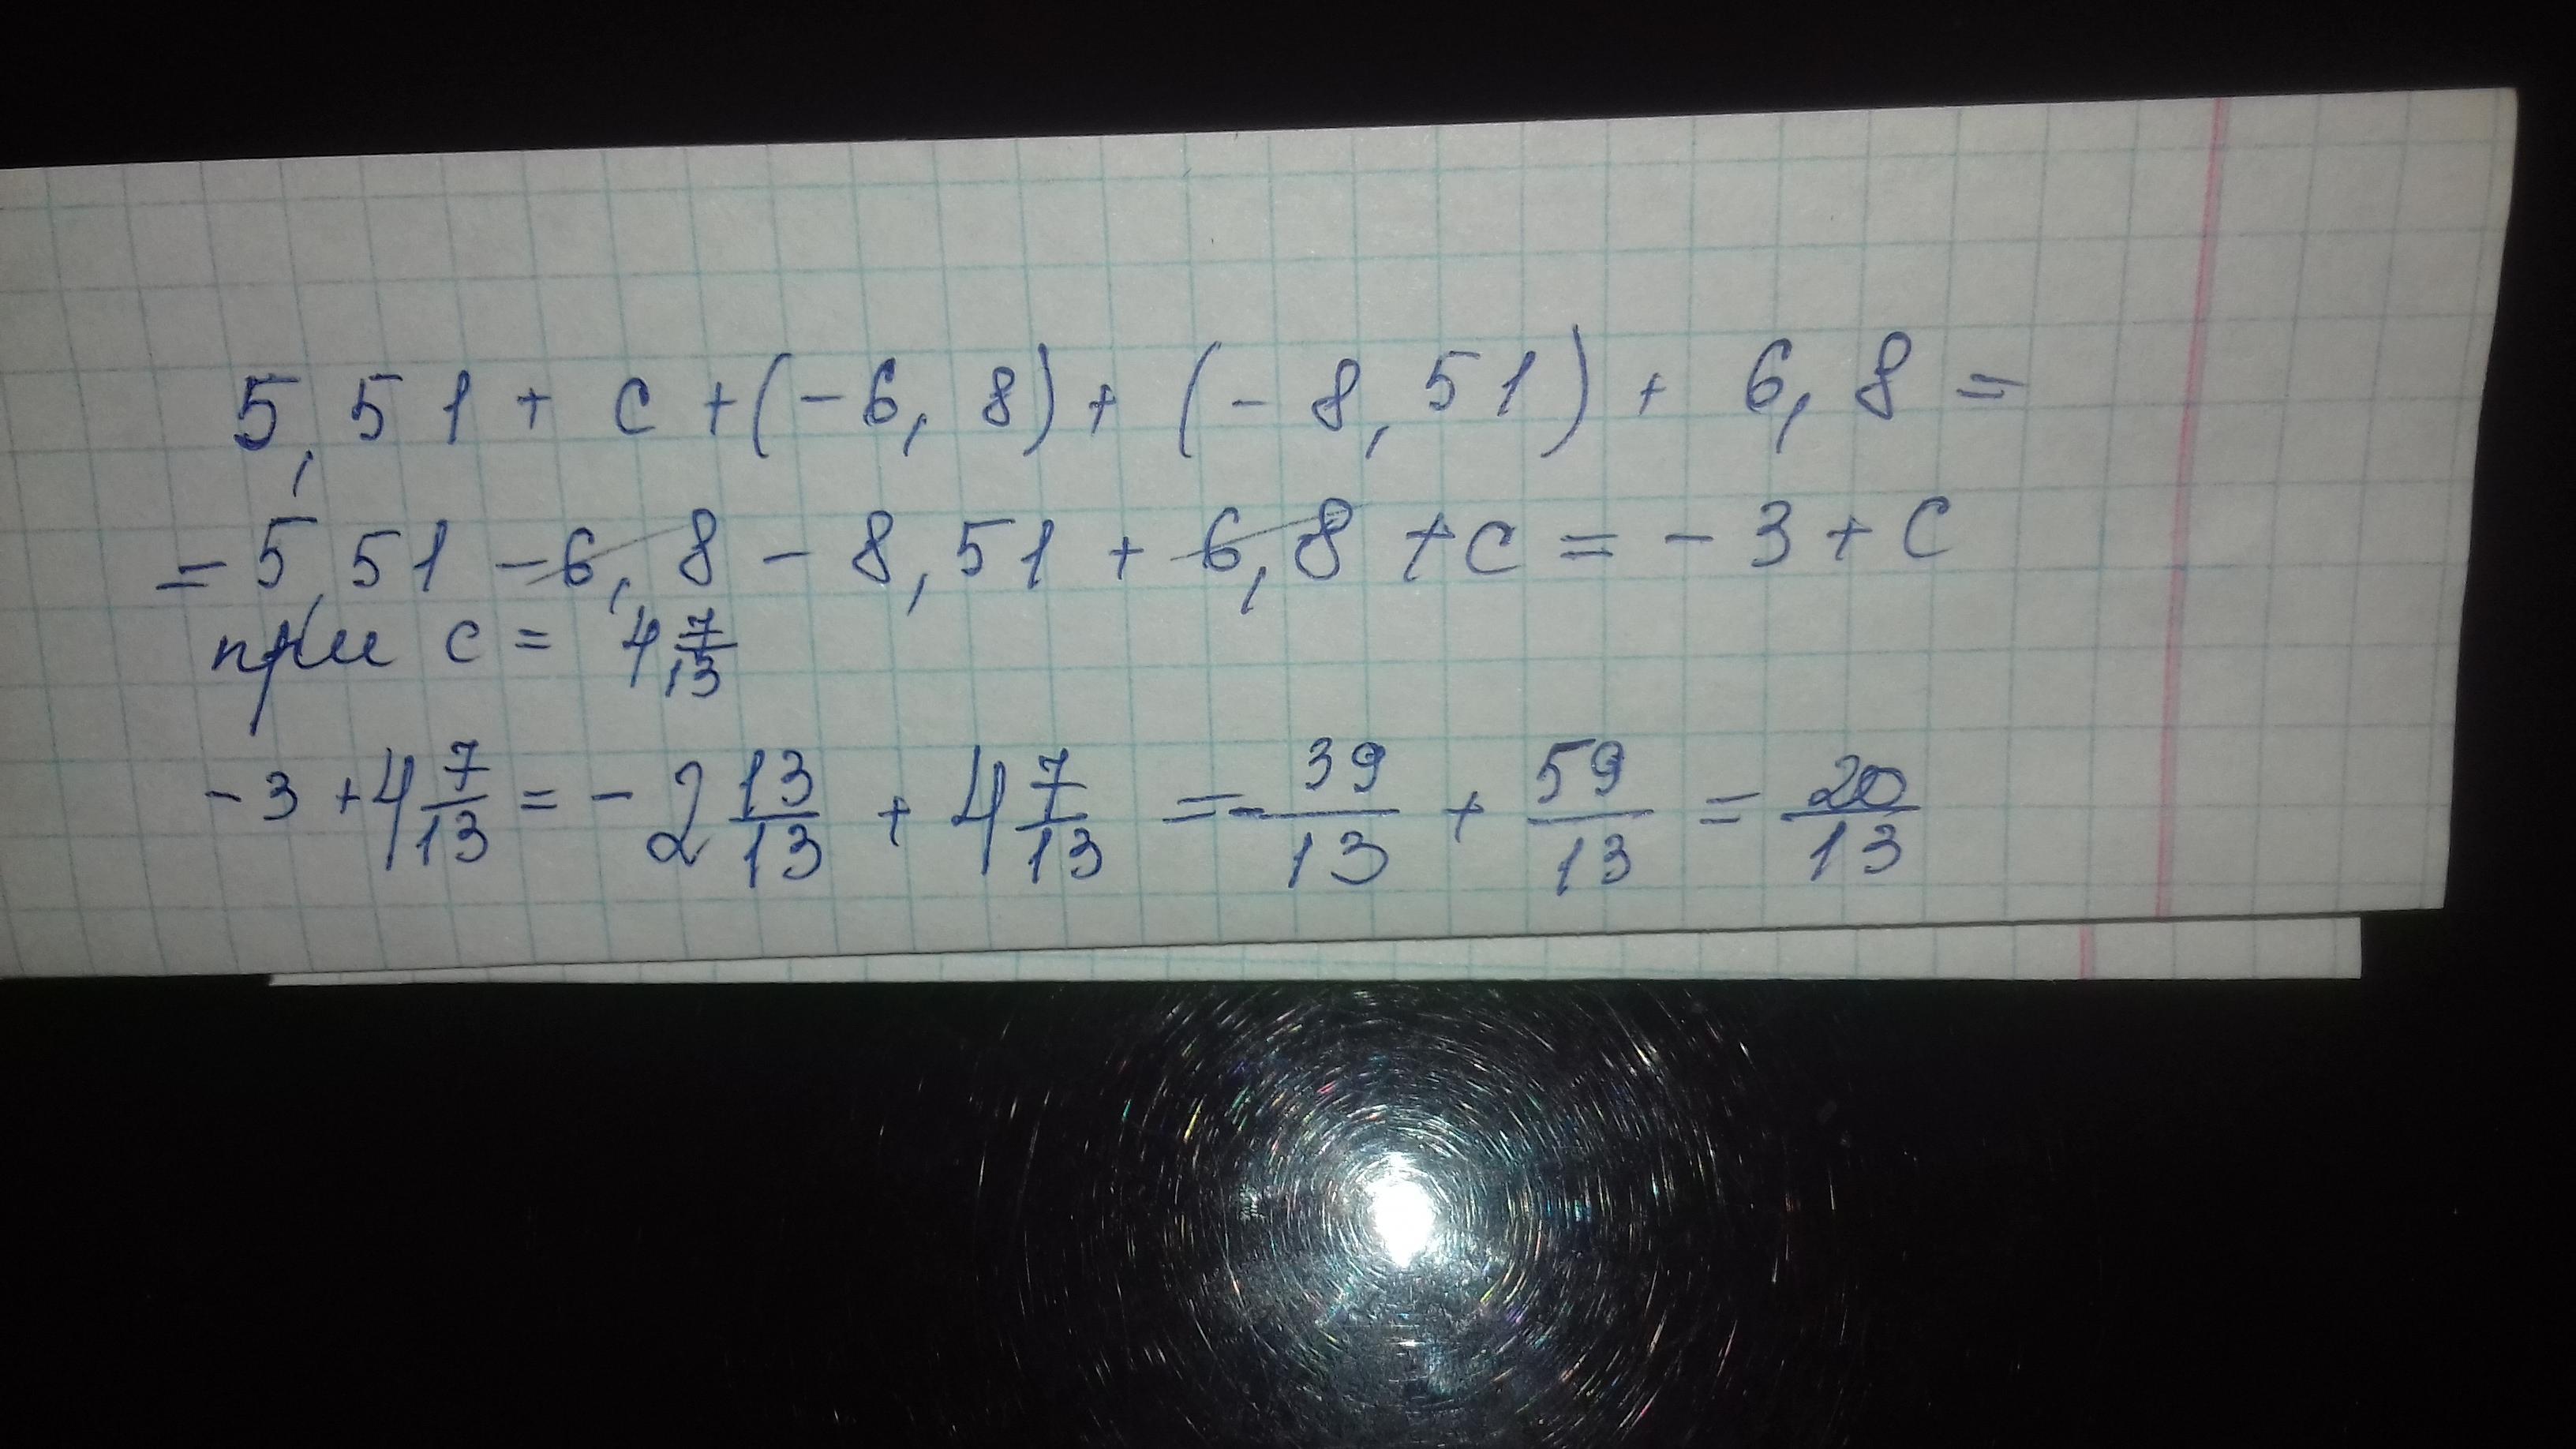 5,51 + c + (-6,8) + (-8,51) + 6,8 =
= 5,51 - 6,8 - 8,51 + 6,8 + c = -3 + c
при c = 4 7/13
-3 + 4 7/13 = -2 13/13 + 4 7/13 = -39/13 + 59/13 = 20/13